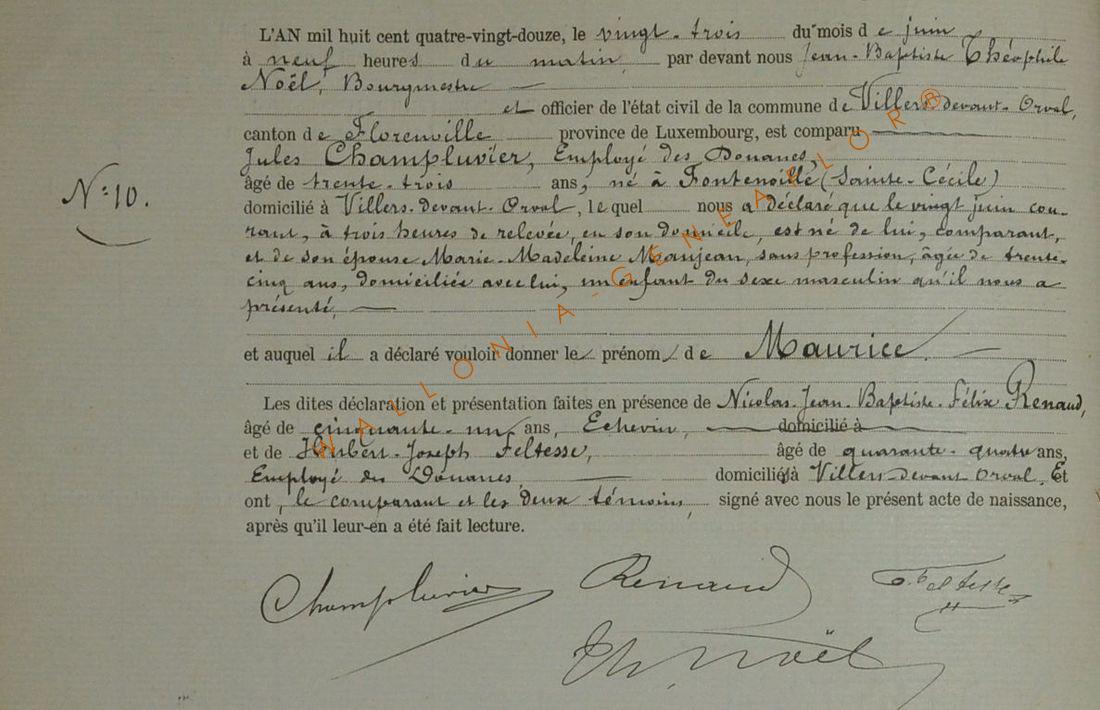 L'AN mil huit cent quatre-vingt-douze, le vingt-trois du mois de juin
à neuf heures du matin, par devant nous Jean-Baptiste Théophile
Noël, Bourgmestre
et officier de l'état civil de la commune de Villers-devant-Orval,
canton de Florenville province de Luxembourg, est comparu
Jules Champluvier, Employé des Douanes,
âgé de trente-trois ans, né à Fontenoille (Sainte-Cécile)
N° 10.
domicilié à Villers-devant-Orval, lequel nous a déclaré que le vingt juin cou-
rant, à trois heures de relevée, en son domicile, est né de lui, comparant,
et de son épouse Marie-Madeleine Manjean, sans profession, âgée de trente-
cinq ans, domiciliée avec lui, un enfant du sexe masculin qu'il nous a
présenté,
et auquel il a déclaré vouloir donner le prénom de Maurice.
Les dites déclaration et présentation faites en présence de Nicolas-Jean-Baptiste-Félix Renaud,
âgé de cinquante-un ans, Echevin, domicilié à
et de Hubert-Joseph Feltesse, âgé de quarante-quatre ans,
Employé des Douanes, domiciliés à Villers-devant-Orval. Et
ont, le comparant et les deux témoins, signé avec nous le présent acte de naissance,
après qu'il leur en a été fait lecture.
Champluvier Renaud Feltesse
Th. Noël
WALLONIA-GENEALOR®